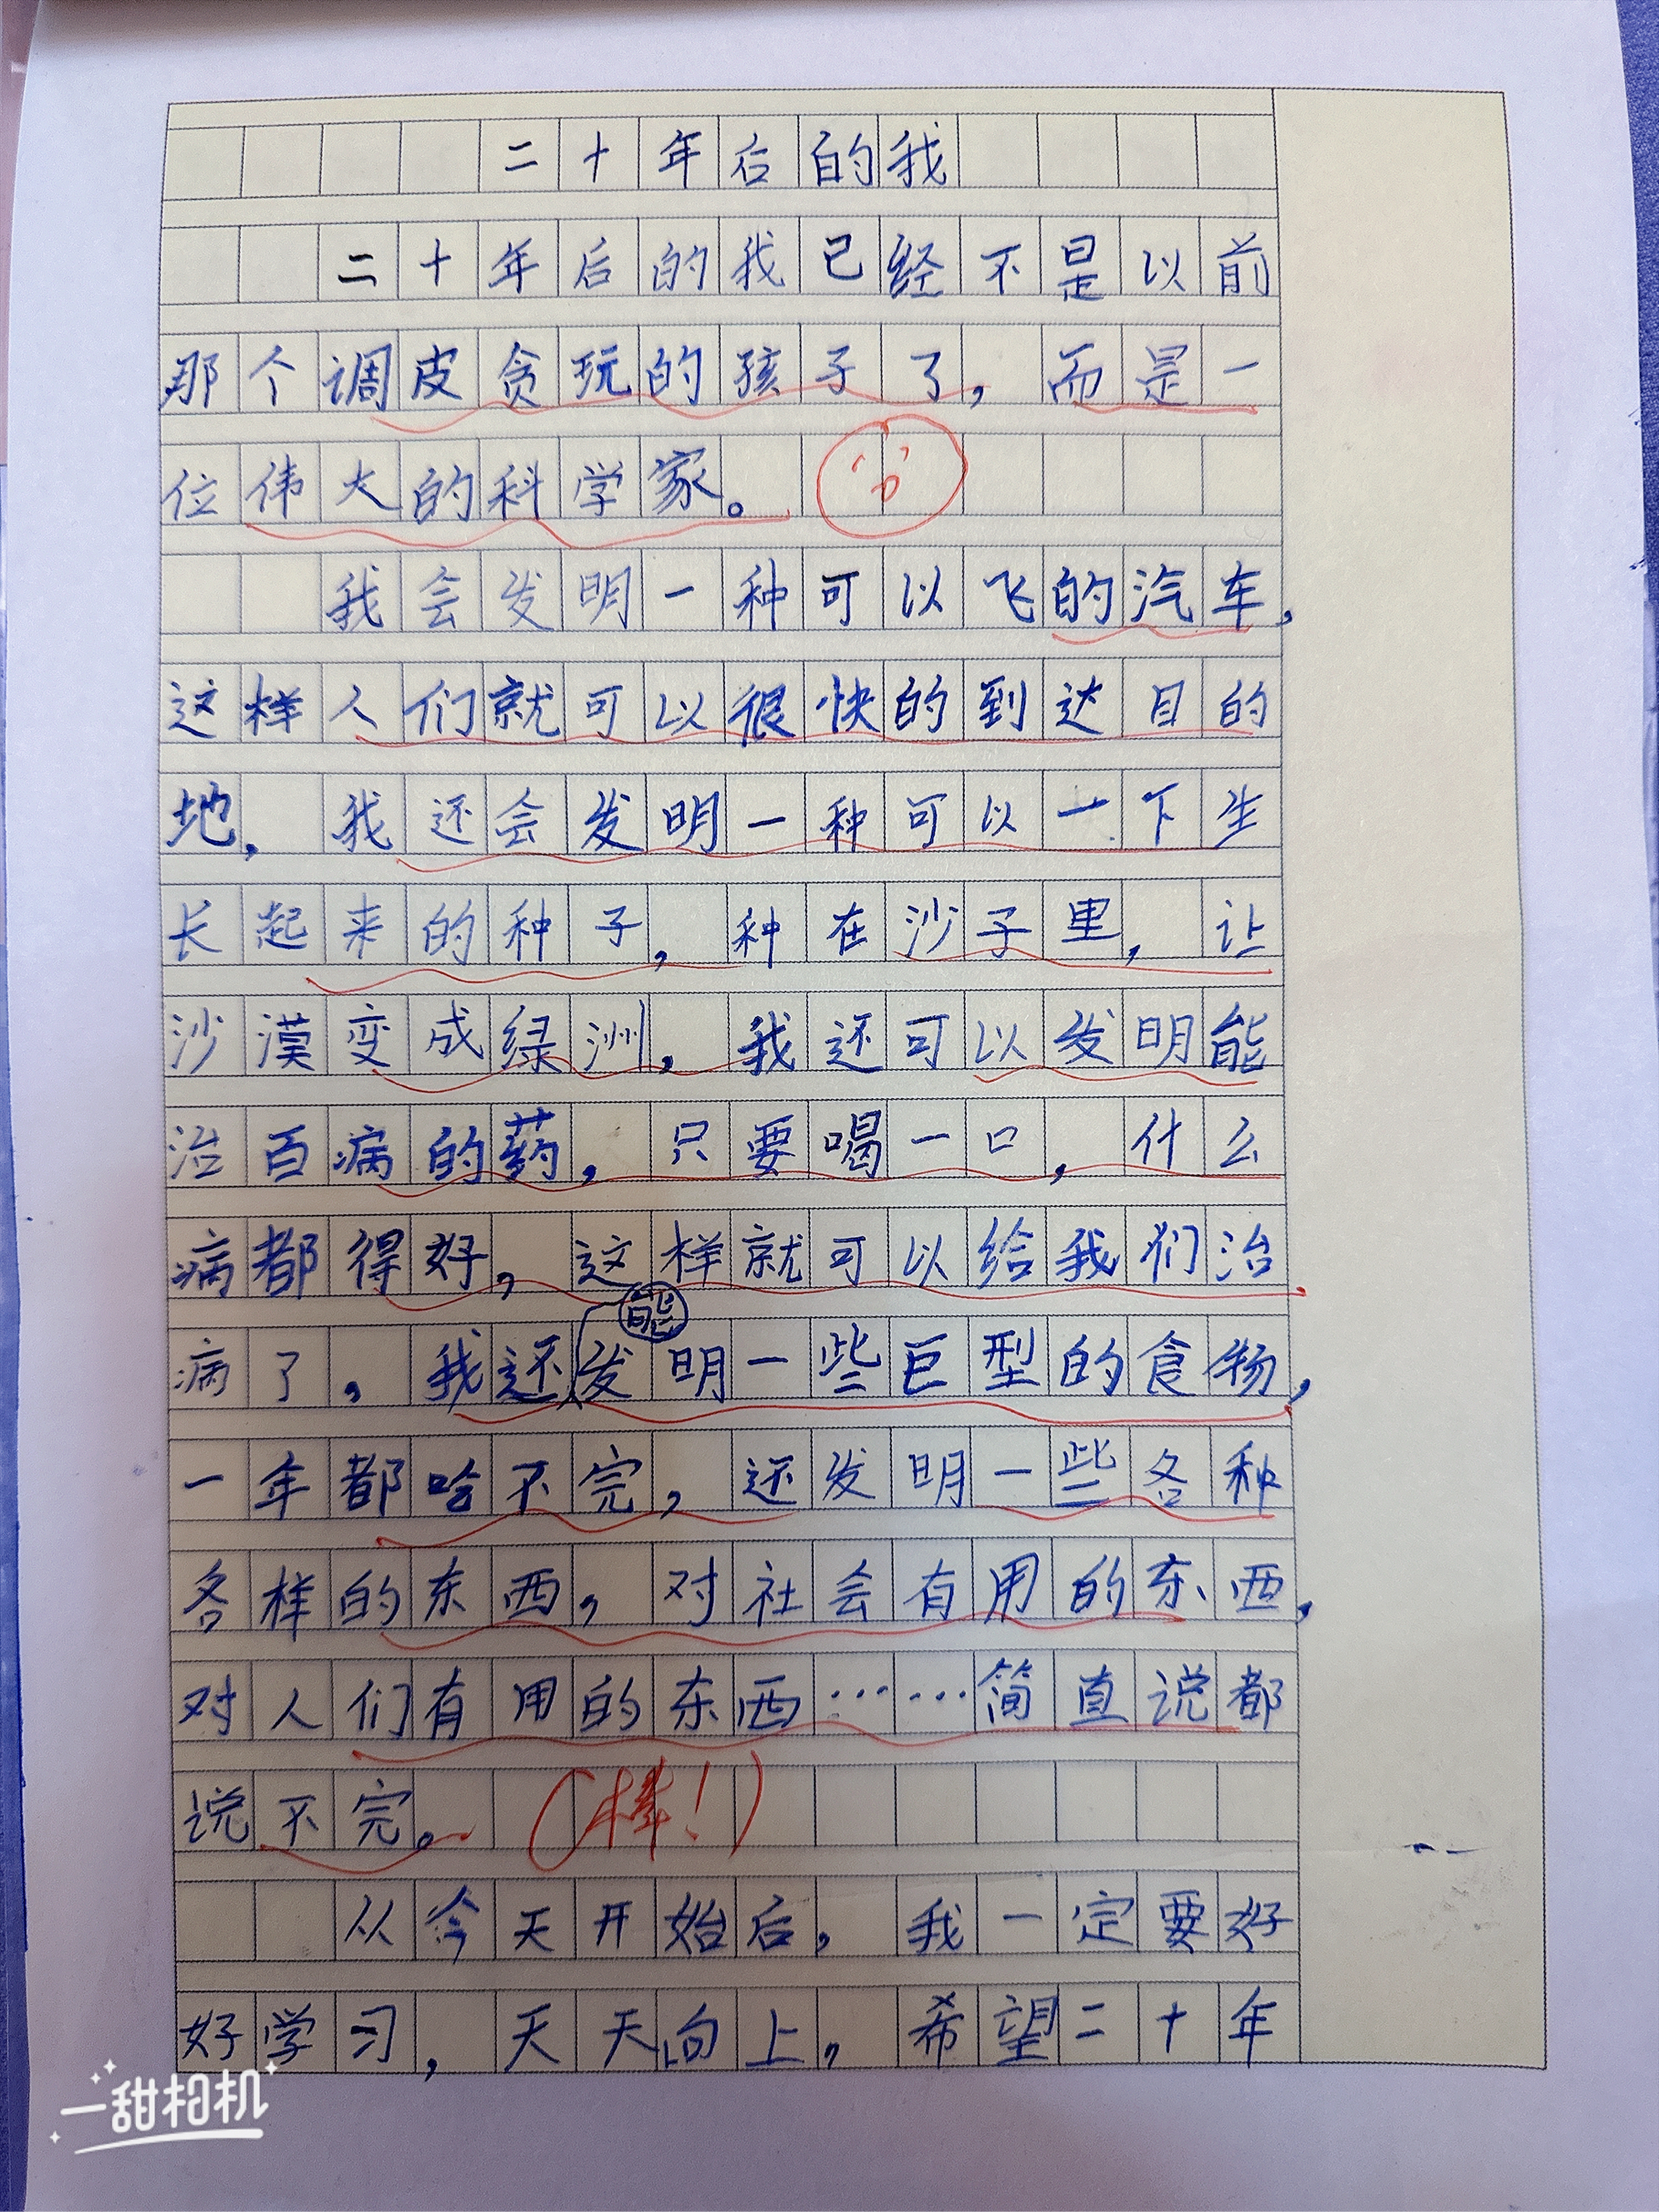 二十年后的我
二十年后的我已经不是以前
那个调皮贪玩的孩子了，而是一
位伟大的科学家。
我会发明一种可以飞的汽车，
这样人们就可以很快的到达目的
地，我还会发明一种可以一下生
长起来的种子，种在沙子里，让
沙漠变成绿洲，我还可以发明能
治百病的药，只要喝一口，什么
病都得好，这样就可以给我们治
病了，我还能发明一些巨型的食物，
一年都啥不完，还发明一些各种
各样的东西，对社会有用的东西，
对人们有用的东西……简直说都
说不完。（棒！）
从今天开始后，我一定要好
好学习，天天向上，希望二十年
一甜相机